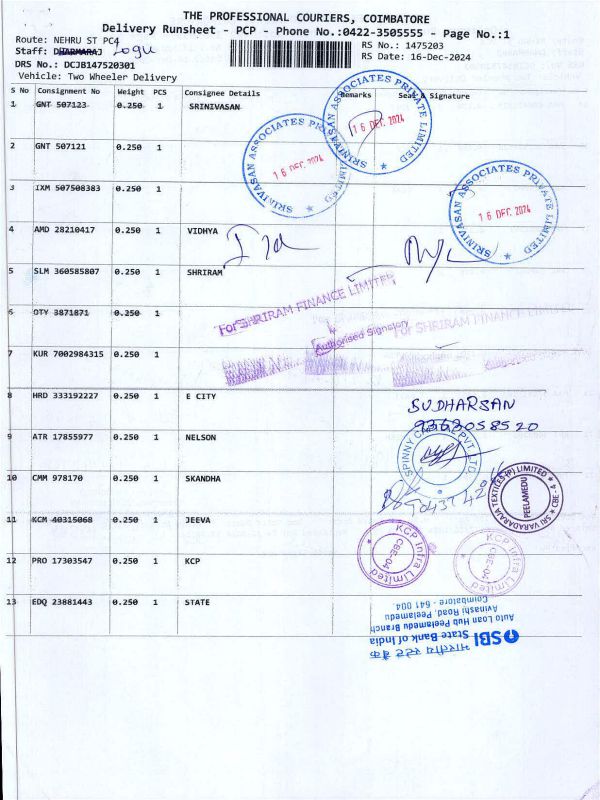 THE PROFESSIONAL COURIERS, COIMBATORE
Delivery Runsheet - PCP - Phone No.:0422-3505555 - Page No.:1
Route: NEHRU ST PC4
RS No.: 1475203
Staff: DHARMARAJ Logu
RS Date: 16-Dec-2024
DRS No.: DCJB147520301
Vehicle: Two Wheeler Delivery
S No Consignment No Weight PCS Consignee Details Remarks Seal & Signature
1 GNT 507123 0.250 1 SRINIVASAN
SRINIVASAN ASSOCIATES PRIVATE LIMITED
16 DEC 2024
2 GNT 507121 0.250 1
SRINIVASAN ASSOCIATES
16 DEC. 2024
3 IXM 507508383 0.250 1
SRINIVASAN ASSOCIATES PRIVATE LIMITED
16 DEC. 2024
4 AMD 28210417 0.250 1 VIDHYA
5 SLM 360585807 0.250 1 SHRIRAM
For SHRIRAM FINANCE LIMITED
6 OTY 3871871 0.250 1
For SHRIRAM FINANCE LIMITED
Authorised Signatory
7 KUR 7002984315 0.250 1
8 HRD 333192227 0.250 1 E CITY
SUDHARSAN
9363058520
9 ATR 17855977 0.250 1 NELSON
SPINNY PVT LTD
10 CMM 978170 0.250 1 SKANDHA
SRI VARADARAJA TEXTILES (P) LIMITED CBE - 4
PEELAMEDU
11 KCM 40315068 0.250 1 JEEVA
KCP Infra Limited
CBE-04
KCP Infra Limited
CBE-04
12 PRO 17303547 0.250 1 KCP
13 EDQ 23881443 0.250 1 STATE
भारतीय स्टेट बैंक
SBI State Bank of India
Auto Loan Hub Peelamedu Branch
Avinashi Road, Peelamedu
Coimbatore - 641 004.